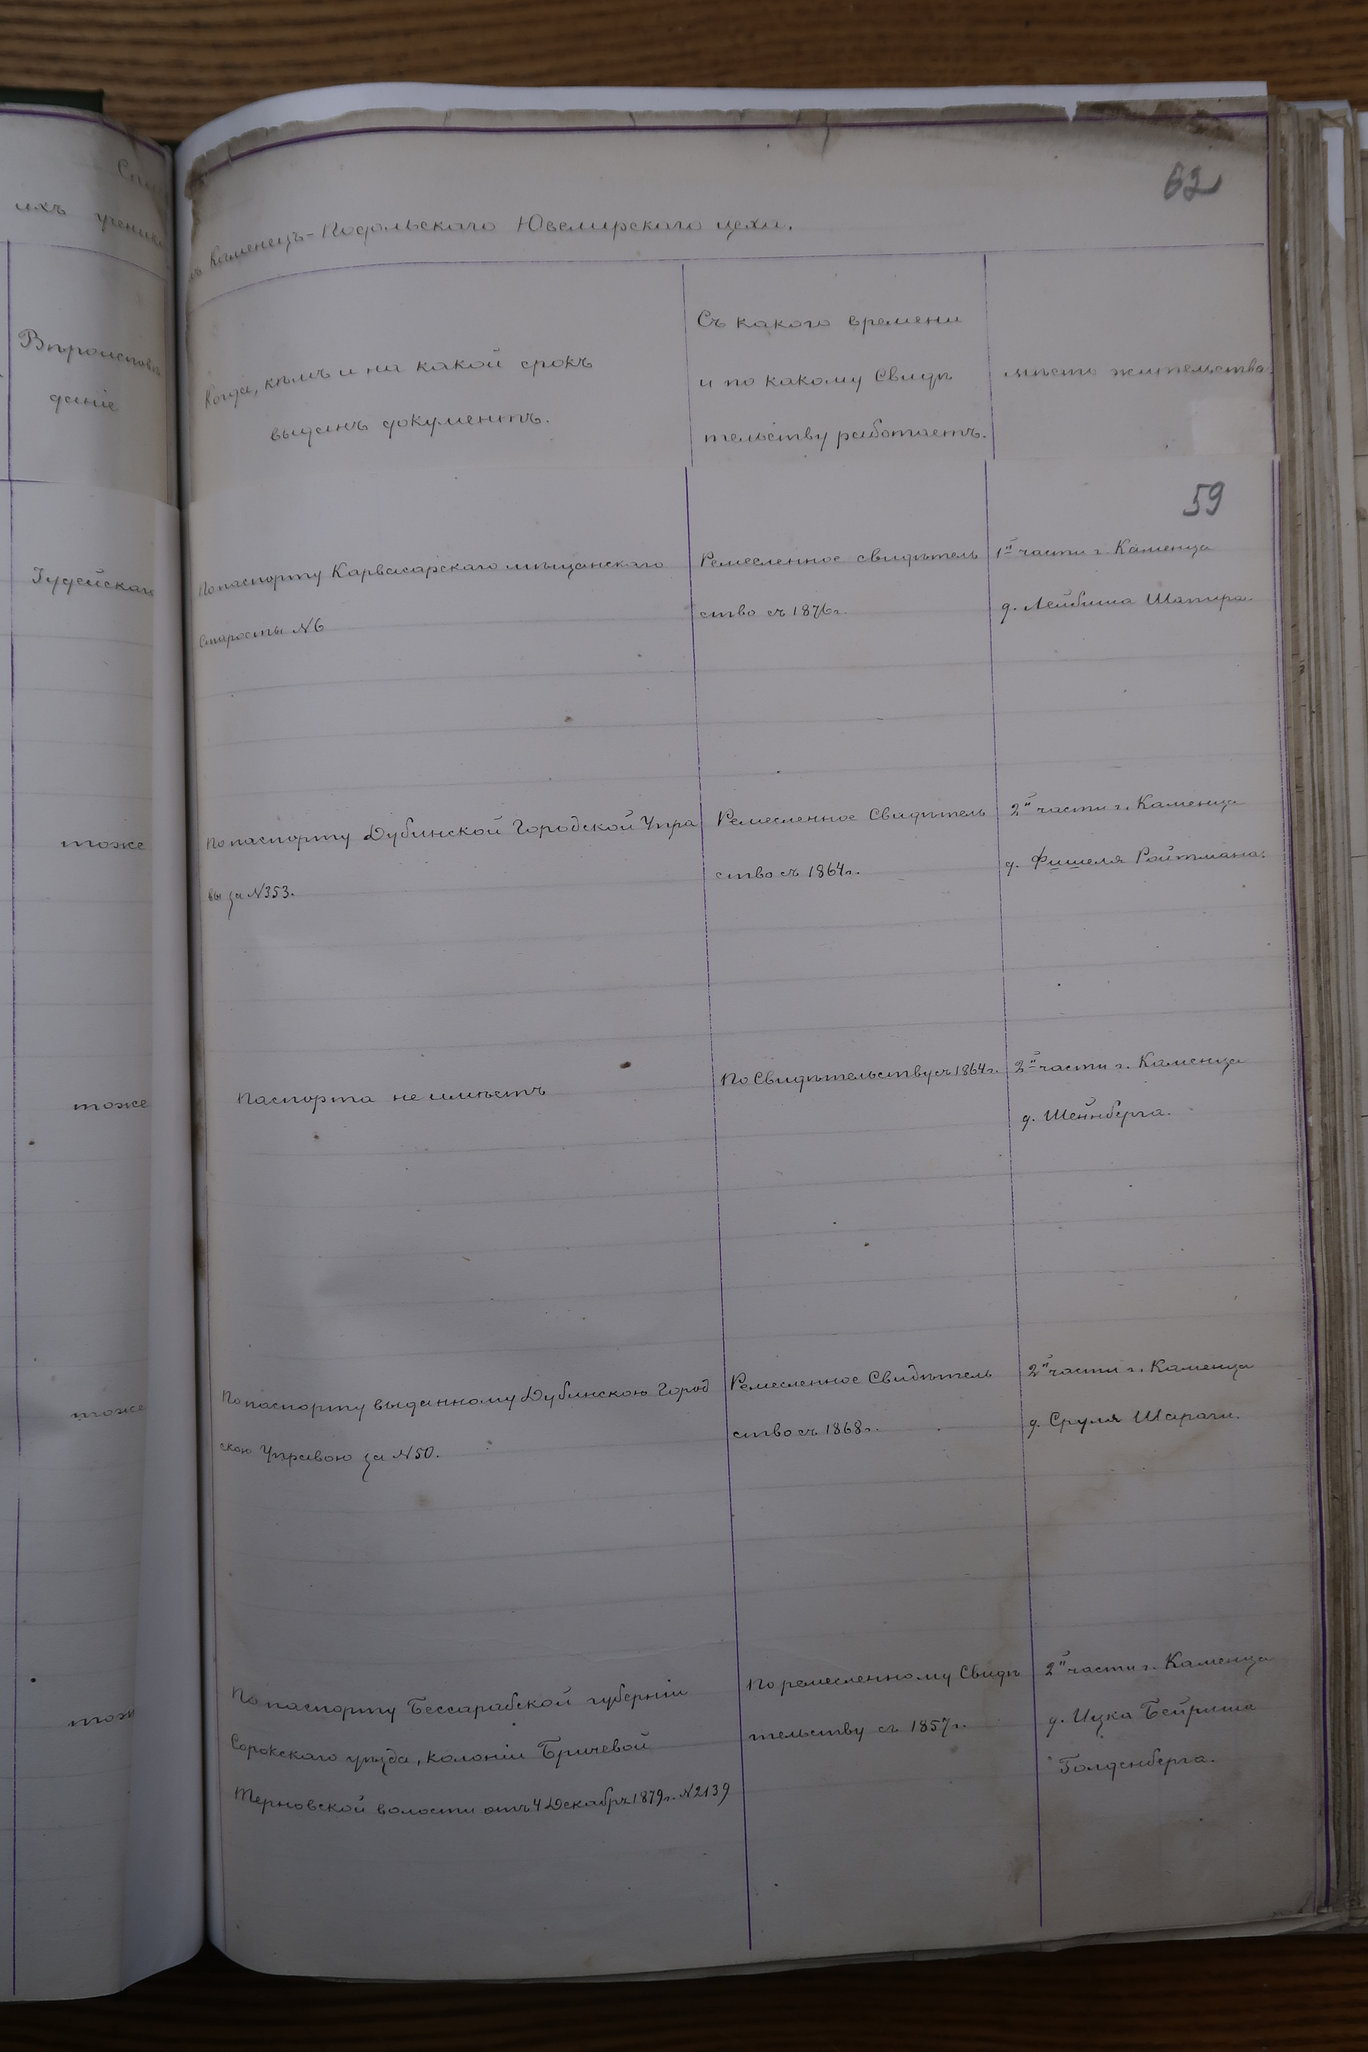 62
ихъ ученик
въ Каменецъ-Подольскаго Ювелирскаго цеха.
Вѣроисповѣ
даніе
Когда, кѣмъ и на какой срокъ
выданъ документъ.
Съ какого времени
и по какому Свидѣ
тельству работаетъ.
мѣсто жительства.
59
Іудейскаго
По паспорту Карвасарскаго мѣщанскаго
Старосты №6
Ремесленное свидѣтель
ство съ 1876г.
1й части г. Каменца
д. Лейбиша Шапира.
тоже
По паспорту Дубинской Городской Упра
вы за №353.
Ремесленное Свидѣтель
ство съ 1864г.
2й части г. Каменца
д. Фишеля Ройтмана.
тоже
Паспорта не имѣетъ
По Свидѣтельству съ 1864г.
2й части г. Каменца
д. Шейнберга.
тоже
По паспорту выданному Дубинскою Город
скою Управою за №50.
Ремесленное Свидѣтель
ство съ 1868г.
2й части г. Каменца
д. Сруля Шараги.
тож
По паспорту Бессарабской губерніи
Сорокскаго уѣзда, колоніи Бричевой
Терновской волости отъ 4 Декабря 1879г. №2139
По ремесленному Свидѣ
тельству съ 1857г.
2й части г. Каменца
д. Ицка Бейриша
Голденберга.